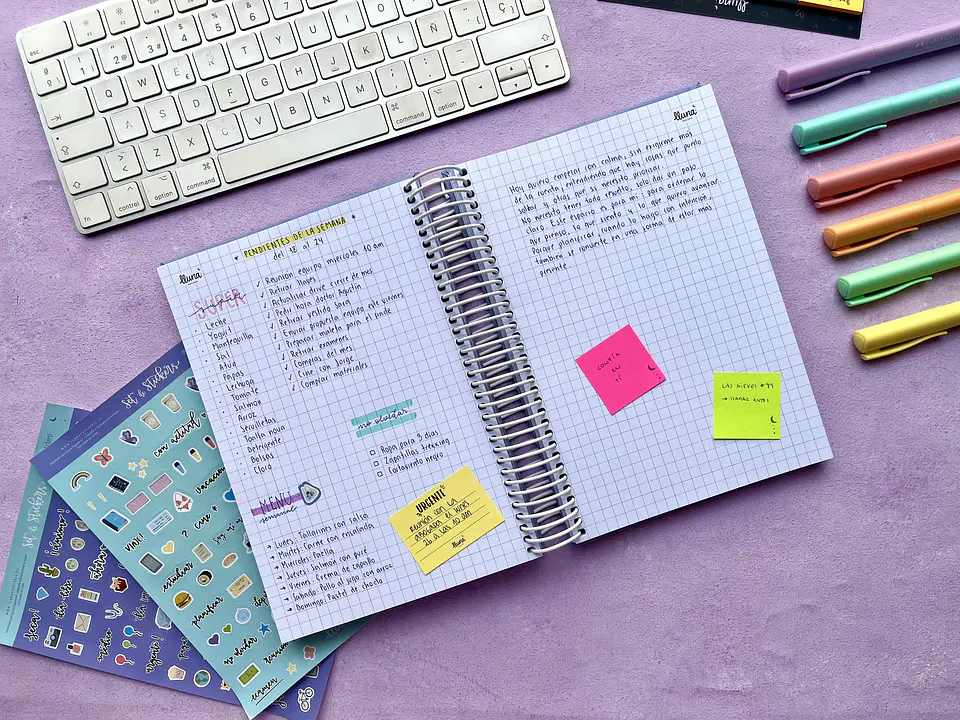 lluna
* PENDIENTES DE LA SEMANA *
del 18 al 24
SÚPER
· Leche
· Yogurt
· Mantequilla
· Sal
· Atún
· Papas
· Lechuga
· Tomate
· Salmón
· Arroz
· Servilletas
· Toalla nova
· Detergente
· Bolsas
· Cloro
✓ Reunión equipo miércoles 10 am
✓ Retirar llaves
✓ Actualizar drive cierre de mes
✓ Pedir hora doctor Agustín
✓ Retirar vestido Sara
✓ Enviar propuesta equipo este viernes
✓ Preparar maleta para el finde
✓ Retirar exámenes
✓ Compras del mes
✓ Cine con Jorge
✓ Comprar materiales
no olvidar
□ Ropa para 3 días
□ Zapatillas trekking
□ Cortaviento negro
MENÚ
semanal
→ Lunes: Tallarines con salsa
→ Martes: Carne con ensalada
→ Miércoles: Paella
→ Jueves: Salmón con puré
→ Viernes: Crema de zapallo
→ Sábado: Pollo al jugo con arroz
→ Domingo: Pastel de choclo
URGENTE
Reunión con la
abogada es lunes
26 a las 10 am
lluna
lluna
Hoy quiero empezar con calma, sin exigirme más
de la cuenta, entendiendo que hay cosas que puedo
soltar y otras que sí necesito priorizar.
No necesito tener todo resuelto, solo dar un paso
claro. Este espacio es para mí: para ordenar lo
que pienso, lo que siento y lo que quiero avanzar.
Porque planificar, cuando lo hago con intención,
también se convierte en una forma de estar más
presente.
CONFÍA
EN
TÍ
LAS NIEVES #99
→ LLAMAR ANTES
set 6 stickers
con actitud
vacaciones
VIAJE!
estudiar
planificar
no olvidar
examen
set 6 stickers
ánimo!
médico
urgente!
esc
Q W E R T Y U I O P
A S D F G H J K L Ñ
Z X C V B N M
fn control option command command option